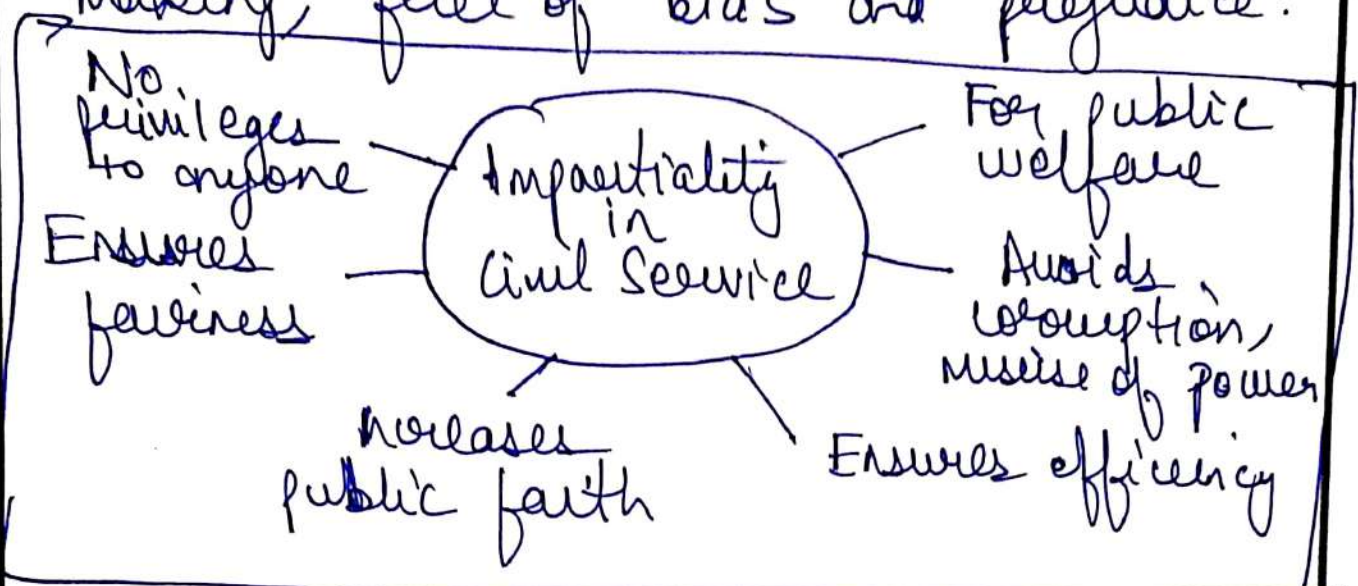 making, free of bias and prejudice.
No
privileges
to anyone
Ensures
fairness
Impartiality
in
Civil Service
For public
welfare
Avoids
corruption,
misuse of power
Increases
public faith
Ensures efficiency